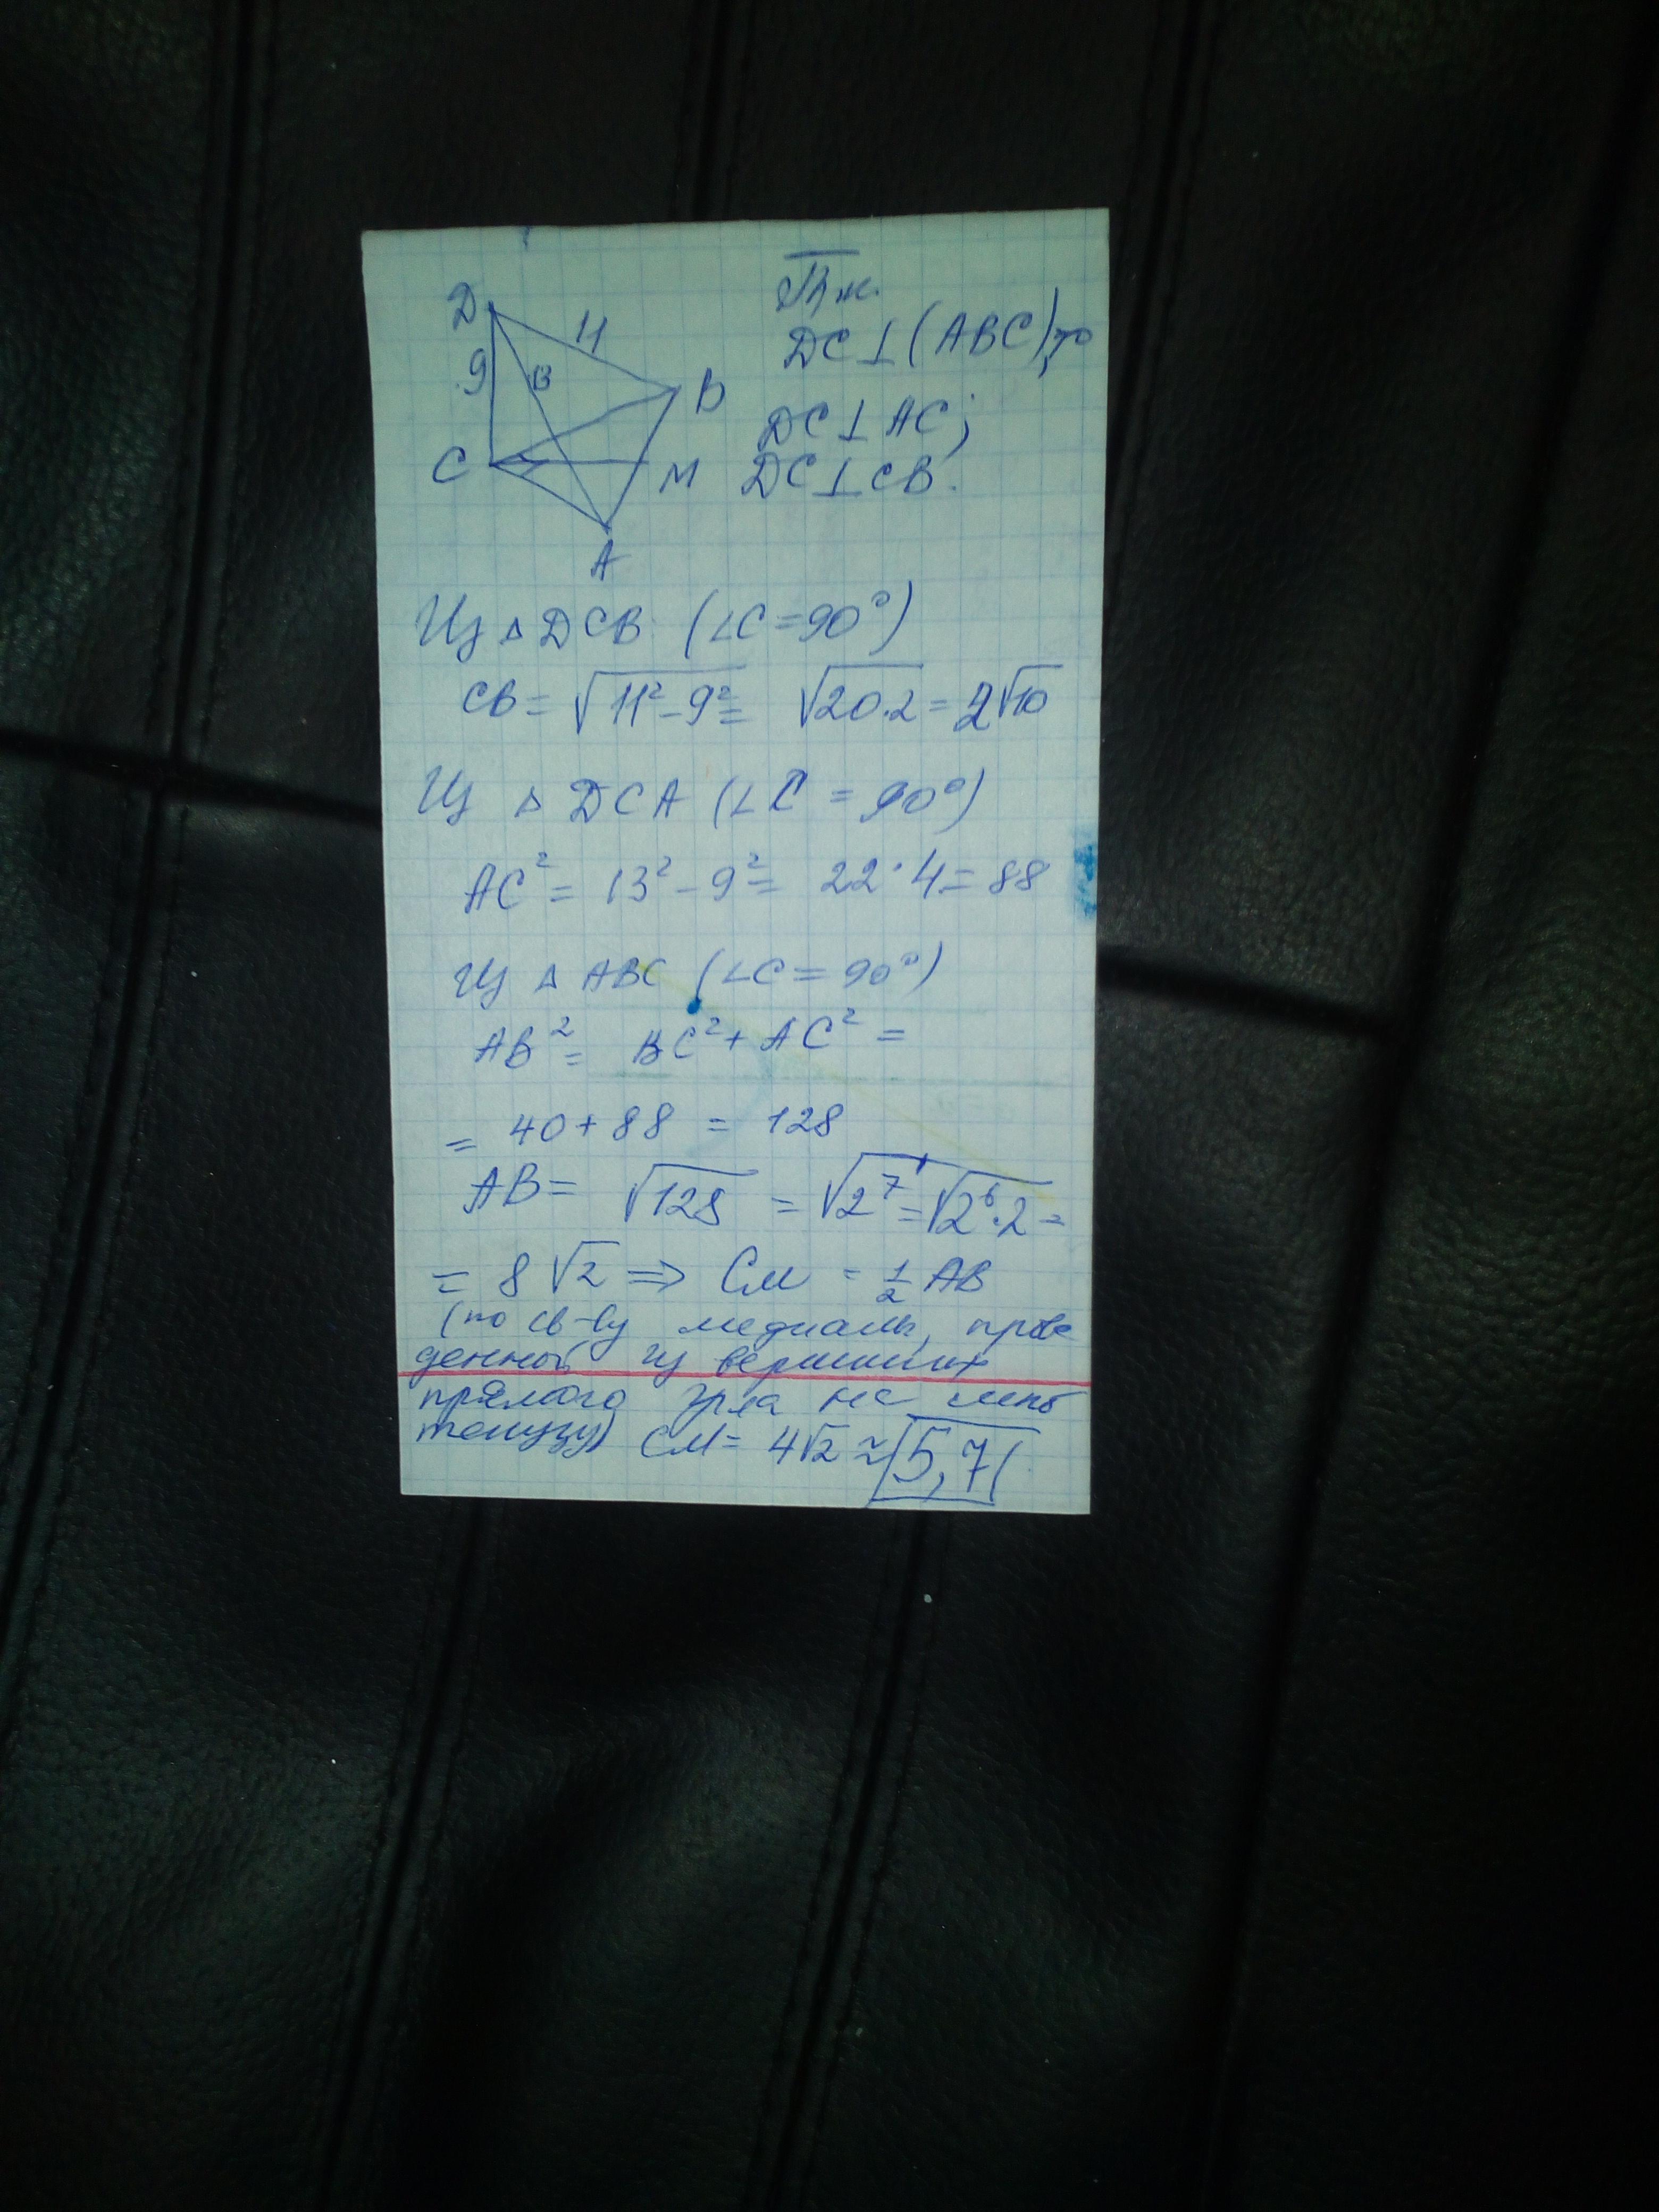 D
11
9
13
B
C
M
A
Т.к.
DC⊥(ABC), то
DC⊥AC;
DC⊥CB.
Из △DCB (∠C=90°)
CB = √11²-9² = √20·2 = 2√10
Из △DCA (∠C = 90°)
AC² = 13²-9² = 22·4 = 88
Из △ABC (∠C = 90°)
AB² = BC² + AC² =
= 40 + 88 = 128
AB = √128 = √2⁷ = √2⁶·2 =
= 8√2 ⇒ CM = 1/2 AB
(по св-ву медианы, прове
денной из вершины
прямого угла на гипо
тенузу) CM = 4√2 ≈ 5,7